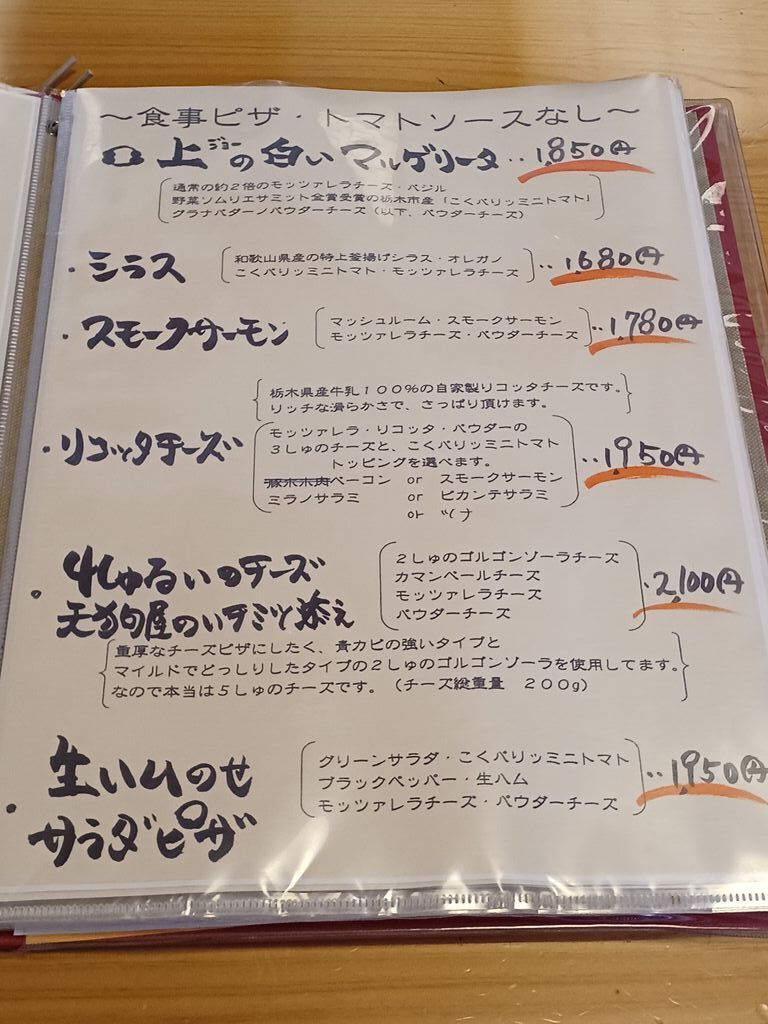 ～食事ピザ・トマトソースなし～
上の白いマルゲリータ‥1,850円
ジョー
通常の約２倍のモッツァレラチーズ・バジル
野菜ソムリエサミット金賞受賞の栃木市産「こくパリッミニトマト」
グラナパダーノパウダーチーズ（以下、パウダーチーズ）
・シラス
和歌山県産の特上釜揚げシラス・オレガノ
こくパリッミニトマト・モッツァレラチーズ
‥1,680円
・スモークサーモン
マッシュルーム・スモークサーモン
モッツァレラチーズ・パウダーチーズ
‥1,780円
栃木県産牛乳１００％の自家製リコッタチーズです。
リッチな滑らかさで、さっぱり頂けます。
・リコッタチーズ
モッツァレラ・リコッタ・パウダーの
３しゅのチーズと、こくパリッミニトマト
トッピングを選べます。
ベーコン or スモークサーモン
ミラノサラミ or ピカンテサラミ
or ツナ
‥1,950円
・4しゅるいのチーズ
天狗屋のハチミツ添え
２しゅのゴルゴンゾーラチーズ
カマンベールチーズ
モッツァレラチーズ
パウダーチーズ
・2,100円
重厚なチーズピザにしたく、青カビの強いタイプと
マイルドでどっしりしたタイプの２しゅのゴルゴンゾーラを使用してます。
なので本当は５しゅのチーズです。（チーズ総重量 ２００g）
・生ハムのせ
サラダピザ
グリーンサラダ・こくパリッミニトマト
ブラックペッパー・生ハム
モッツァレラチーズ・パウダーチーズ
‥1,950円